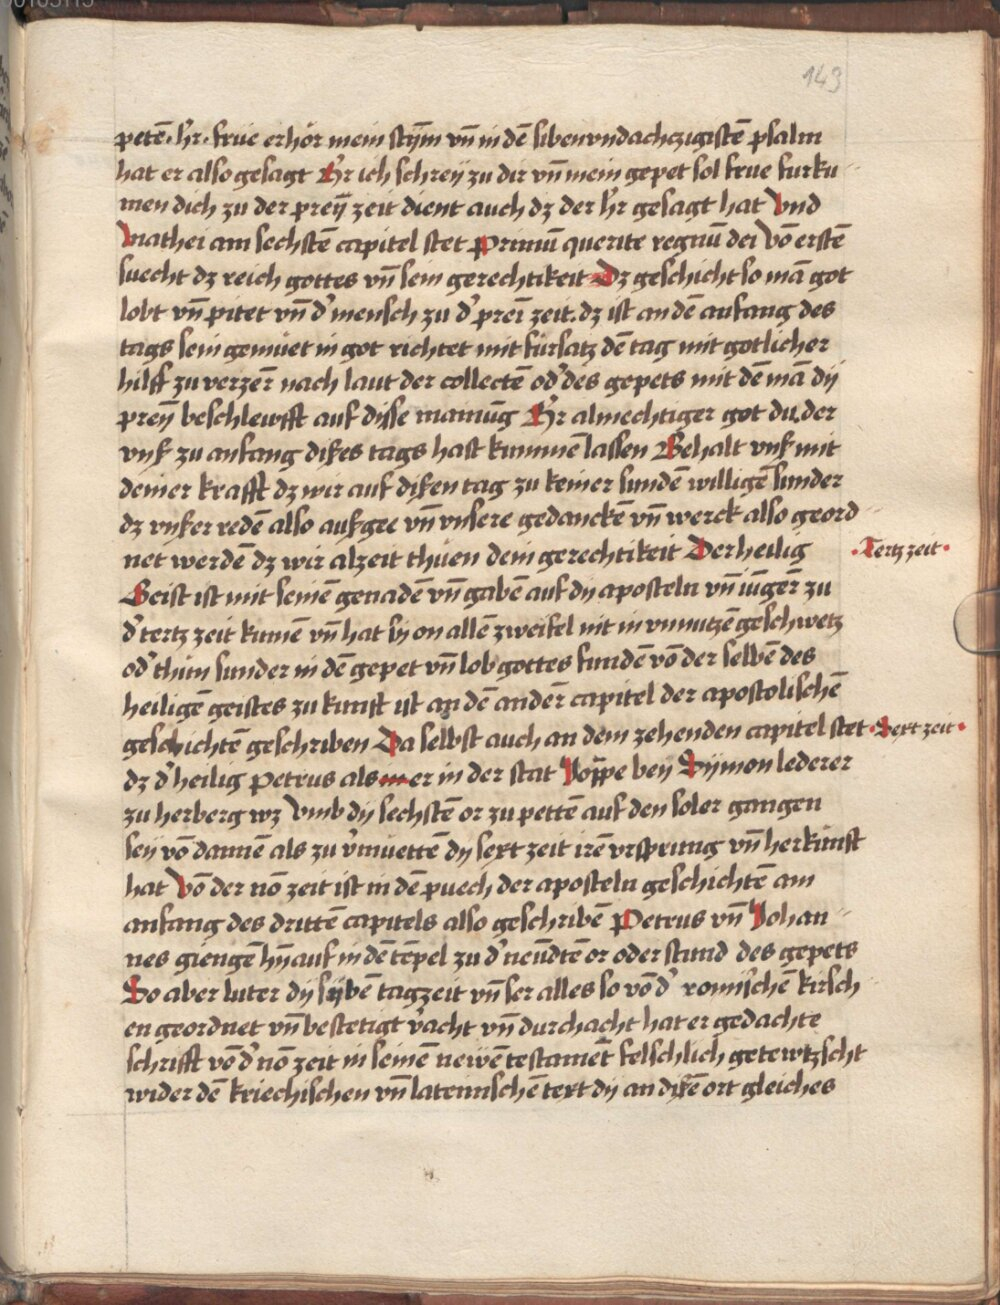 143
petē · hr̄ · frue erhör mein stȳm vn̄ in dē sibenvndachczigistē psalm
hat er also gesagt Hr̄ ich schreÿ zu dir vn̄ mein gepet sol frue furku
men dich zu der preÿ zeit dient auch dz der hr̄ gesagt hat Vnd
Mathei am sechstē capitel stet Primū querite regnū dei Vō erstē
suecht dz reich gottes vn̄ sein gerechtikeit Dz geschicht so mā got
lobt vn̄ pitet vn̄ d' mensch zu d' prei zeit. dz ist an dē anfang des
tags sein gemüet in got richtet mit fürsatz dē tag mit gotlicher
hilff zu verzern̄ nach laut der collectē od' des gepets mit dē mā dÿ
preÿ beschlewsst auf disse mainūg Hr̄ almechtiger got du. der
vnß zu anfang dises tags hast kummē lassen Behalt vnß mit
deiner krafft dz wir auf disen tag zu keiner sundē willigē sunder
dz vnser redē also aufgee vn̄ vnsere gedanckē vn̄ werck also geord
net werdē dz wir alzeit thuen dein gerechtikeit Der heilig
· Tertz zeit ·
Geist ist mit seinē genadē vn̄ gabē auf dÿ aposteln vn̄ iūger̄ zu
d' tertz zeit kumē vn̄ hat sÿ on allē zweifel nit in vnnutzē geschwetz
od' thun sunder in dē gepet vn̄ lob gottes fundē vō der selbē des
heiligē geistes zu kunft ist an dē ander̄ capitel der apostolischē
geschichtē geschriben Da selbst auch an dem zehenden capitel stet
· Sext zeit ·
dz d' heilig Petrus als er in der stat Joppe beÿ Sÿmon lederer
zu herberg wz Vmb dÿ sechstē or zu pettē auf den soler gangen
seÿ vō dannē als zu v'muettē dÿ sext zeit irē vrsprung vn̄ herkunft
hat Vō der nō zeit ist in dē puech der aposteln geschichtē am
anfang des drittē capitels also geschribē Petrus vn̄ Johan
nes giengē hÿnauf in dē tēpel zu d' neūdtē or oder stund des gepets
So aber luter dÿ sÿbē tagzeit vn̄ ser alles so vō d' romischē kirsch
en geordnet vn̄ bestetigt v'acht vn̄ durchacht hat er gedachte
schrifft vō d' nō zeit in seinē newē testamēt felschlich getewtzscht
wider dē kriechischen vn̄ lateinischē text dÿ an disē ort gleiches